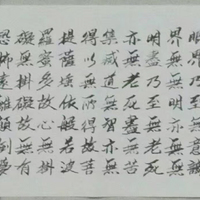 界無無明亦無無
明盡乃至無老死
亦無老死盡無苦
集滅道無智亦無
得以無所得故菩
提薩埵依般若波
羅蜜多故心無掛
礙無掛礙故無有
恐怖遠離顛倒夢